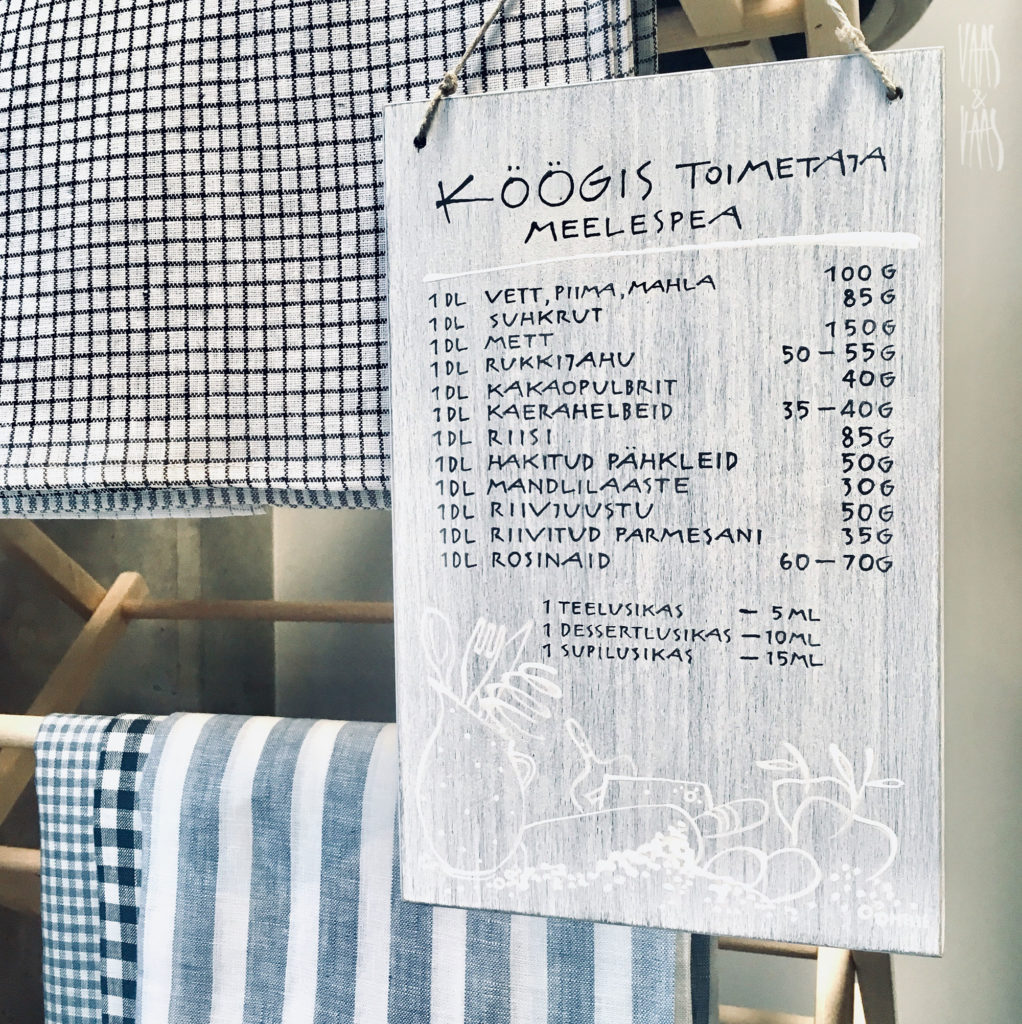 VAAS
&
VAAS
KÖÖGIS TOIMETAJA
MEELESPEA
1 DL VETT, PIIMA, MAHLA 100 G
1 DL SUHKRUT 85 G
1 DL METT 150 G
1 DL RUKKIJAHU 50 – 55 G
1 DL KAKAOPULBRIT 40 G
1 DL KAERAHELBEID 35 – 40 G
1 DL RIISI 85 G
1 DL HAKITUD PÄHKLEID 50 G
1 DL MANDLILAASTE 30 G
1 DL RIIVJUUSTU 50 G
1 DL RIIVITUD PARMESANI 35 G
1 DL ROSINAID 60 – 70 G
1 TEELUSIKAS – 5 ML
1 DESSERTLUSIKAS – 10 ML
1 SUPILUSIKAS – 15 ML